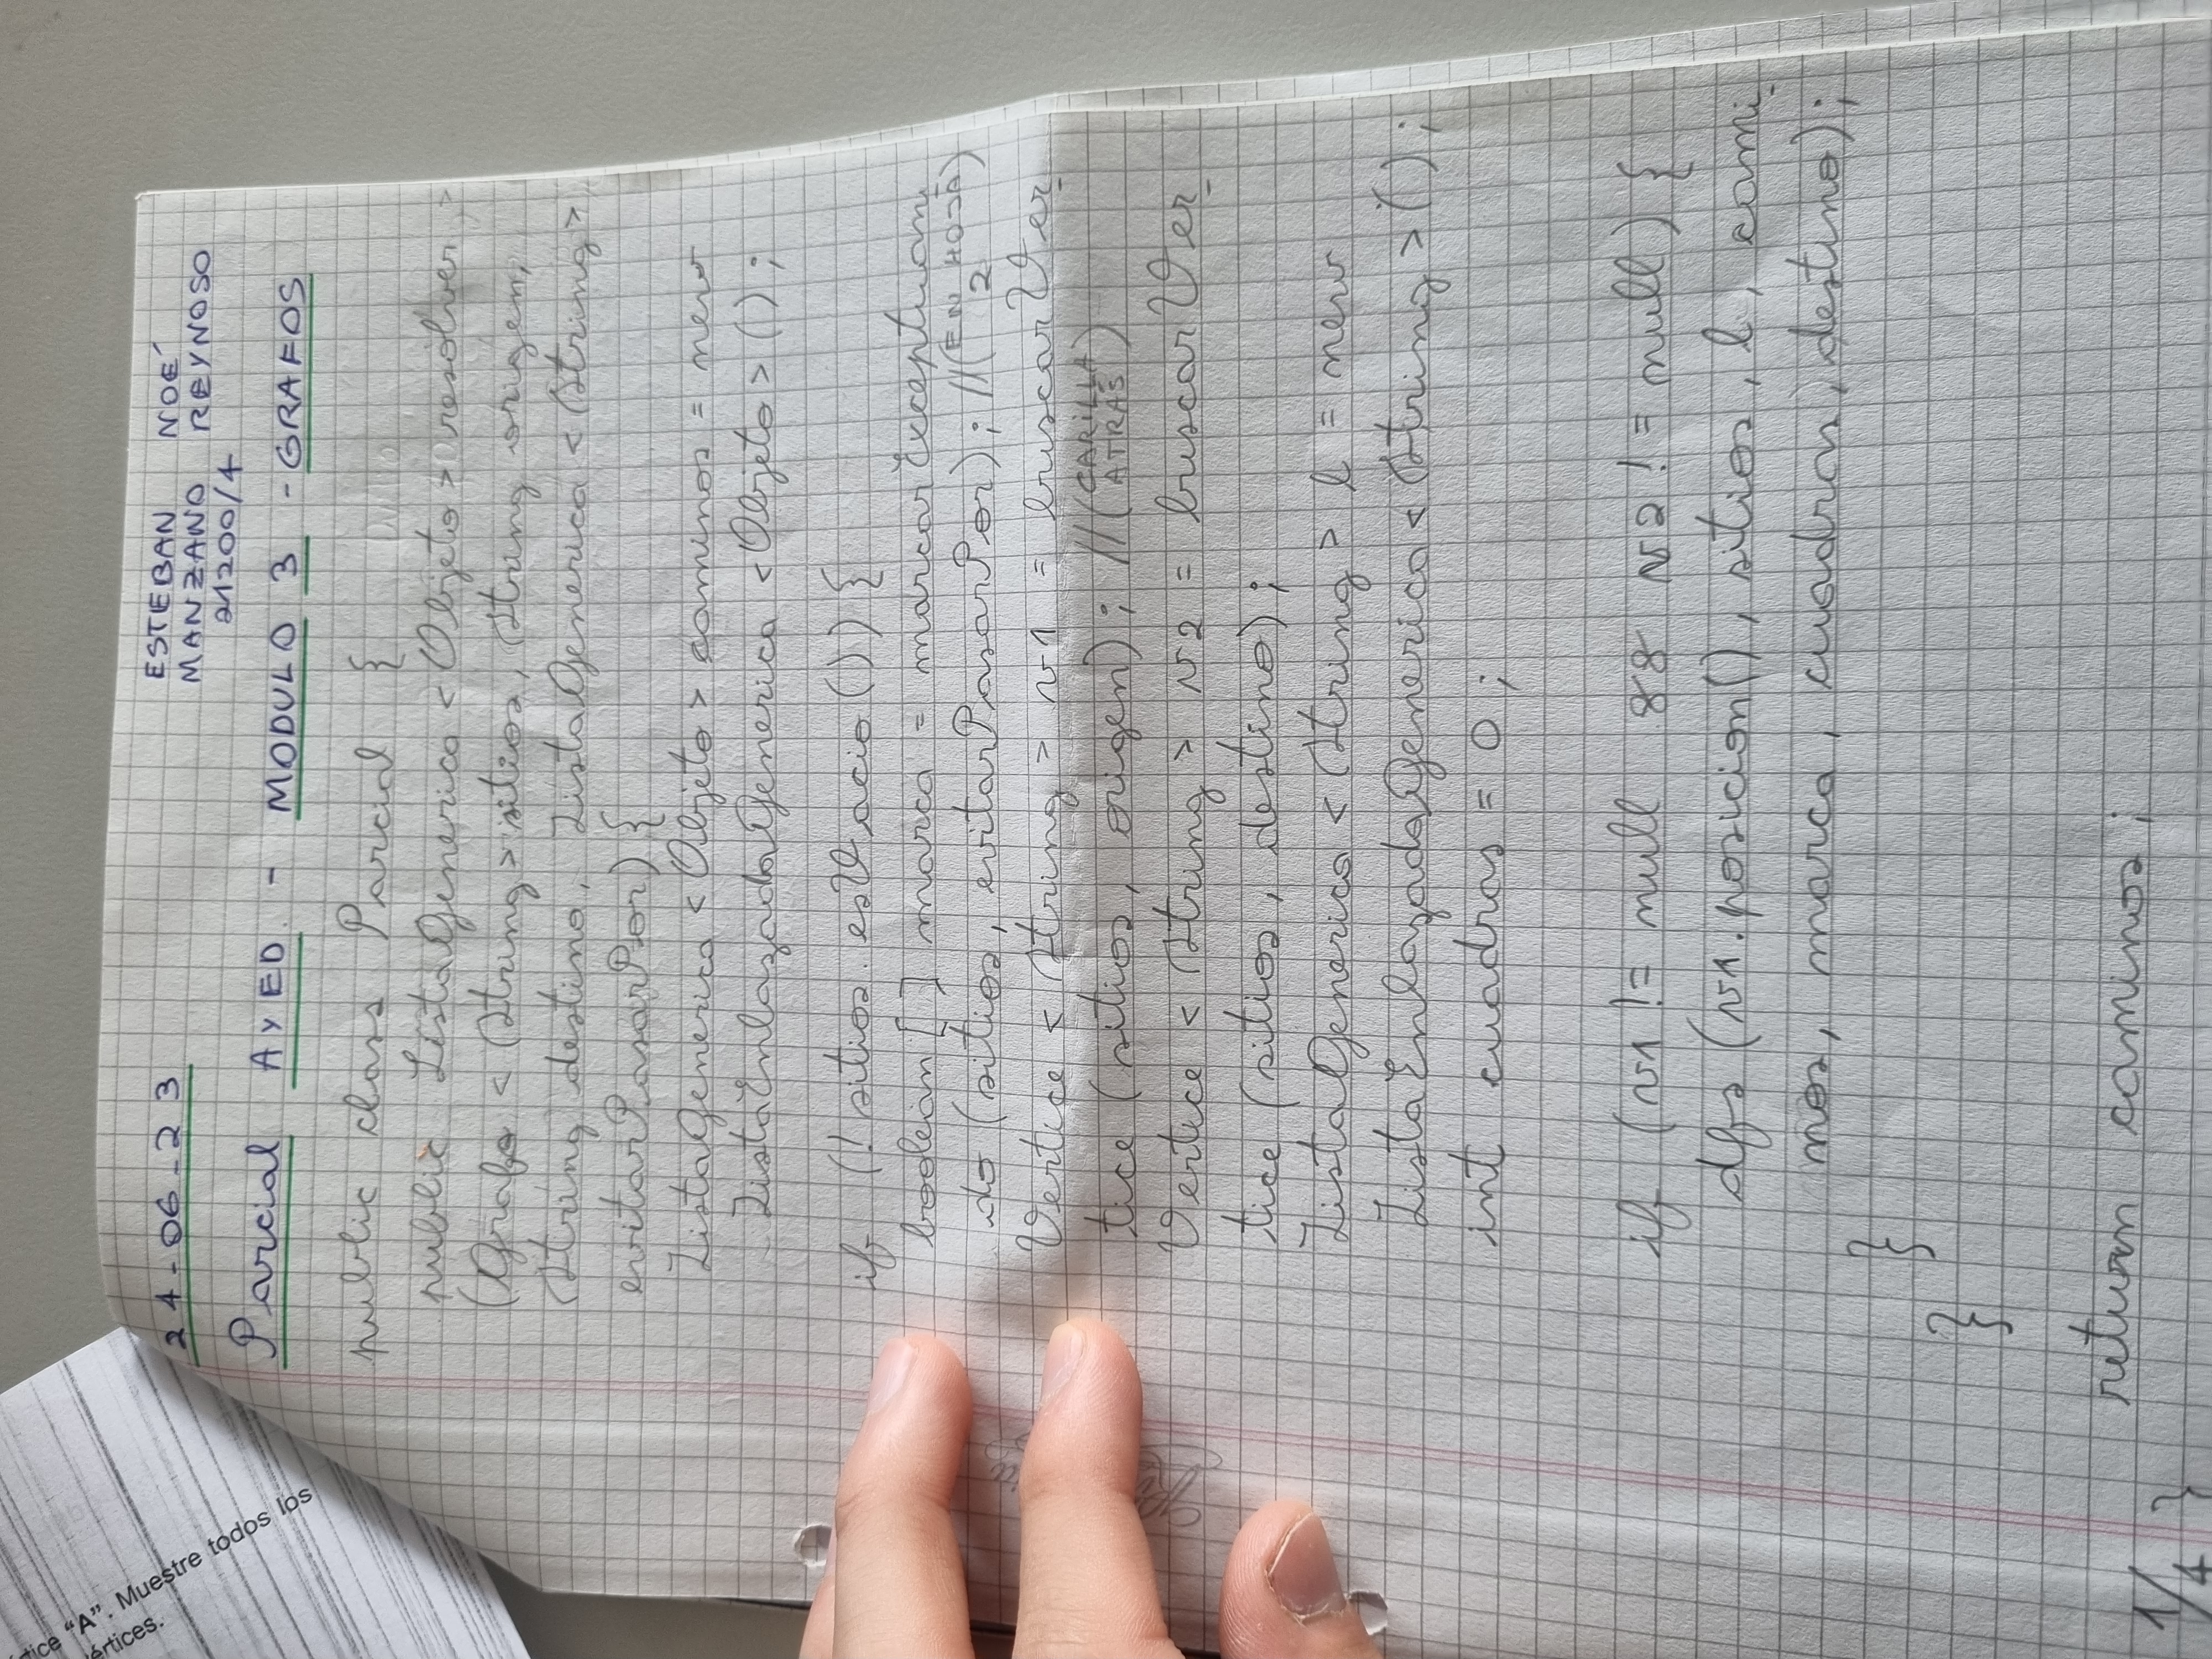 tice "A". Muestre todos los
értices.
24-06-23
ESTEBAN NOÉ
MANZANO REYNOSO
21200/4
Parcial AyED - MODULO 3 - GRAFOS
public class Parcial {
public ListaGenerica <Objeto> resolver
(Grafo <String> sitios, String origen,
String destino, ListaGenerica <String>
evitarPasarPor) {
ListaGenerica <Objeto> caminos = new
ListaEnlazadaGenerica <Objeto> ();
if (! sitios.esVacio ()) {
boolean [] marca = marcarExceptuan
do (sitios, evitarPasarPor); //(EN HOJA 2)
Vertice <String> v1 = buscarVer
tice (sitios, origen); //(CARILLA ATRÁS)
Vertice <String> v2 = buscarVer
tice (sitios, destino);
ListaGenerica <String> l = new
ListaEnlazadaGenerica <String> ();
int cuadras = 0;
if (v1 != null && v2 != null) {
dfs (v1.posicion(), sitios, l, cami
nos, marca, cuadras, destino);
}
}
return caminos;
1/4 }